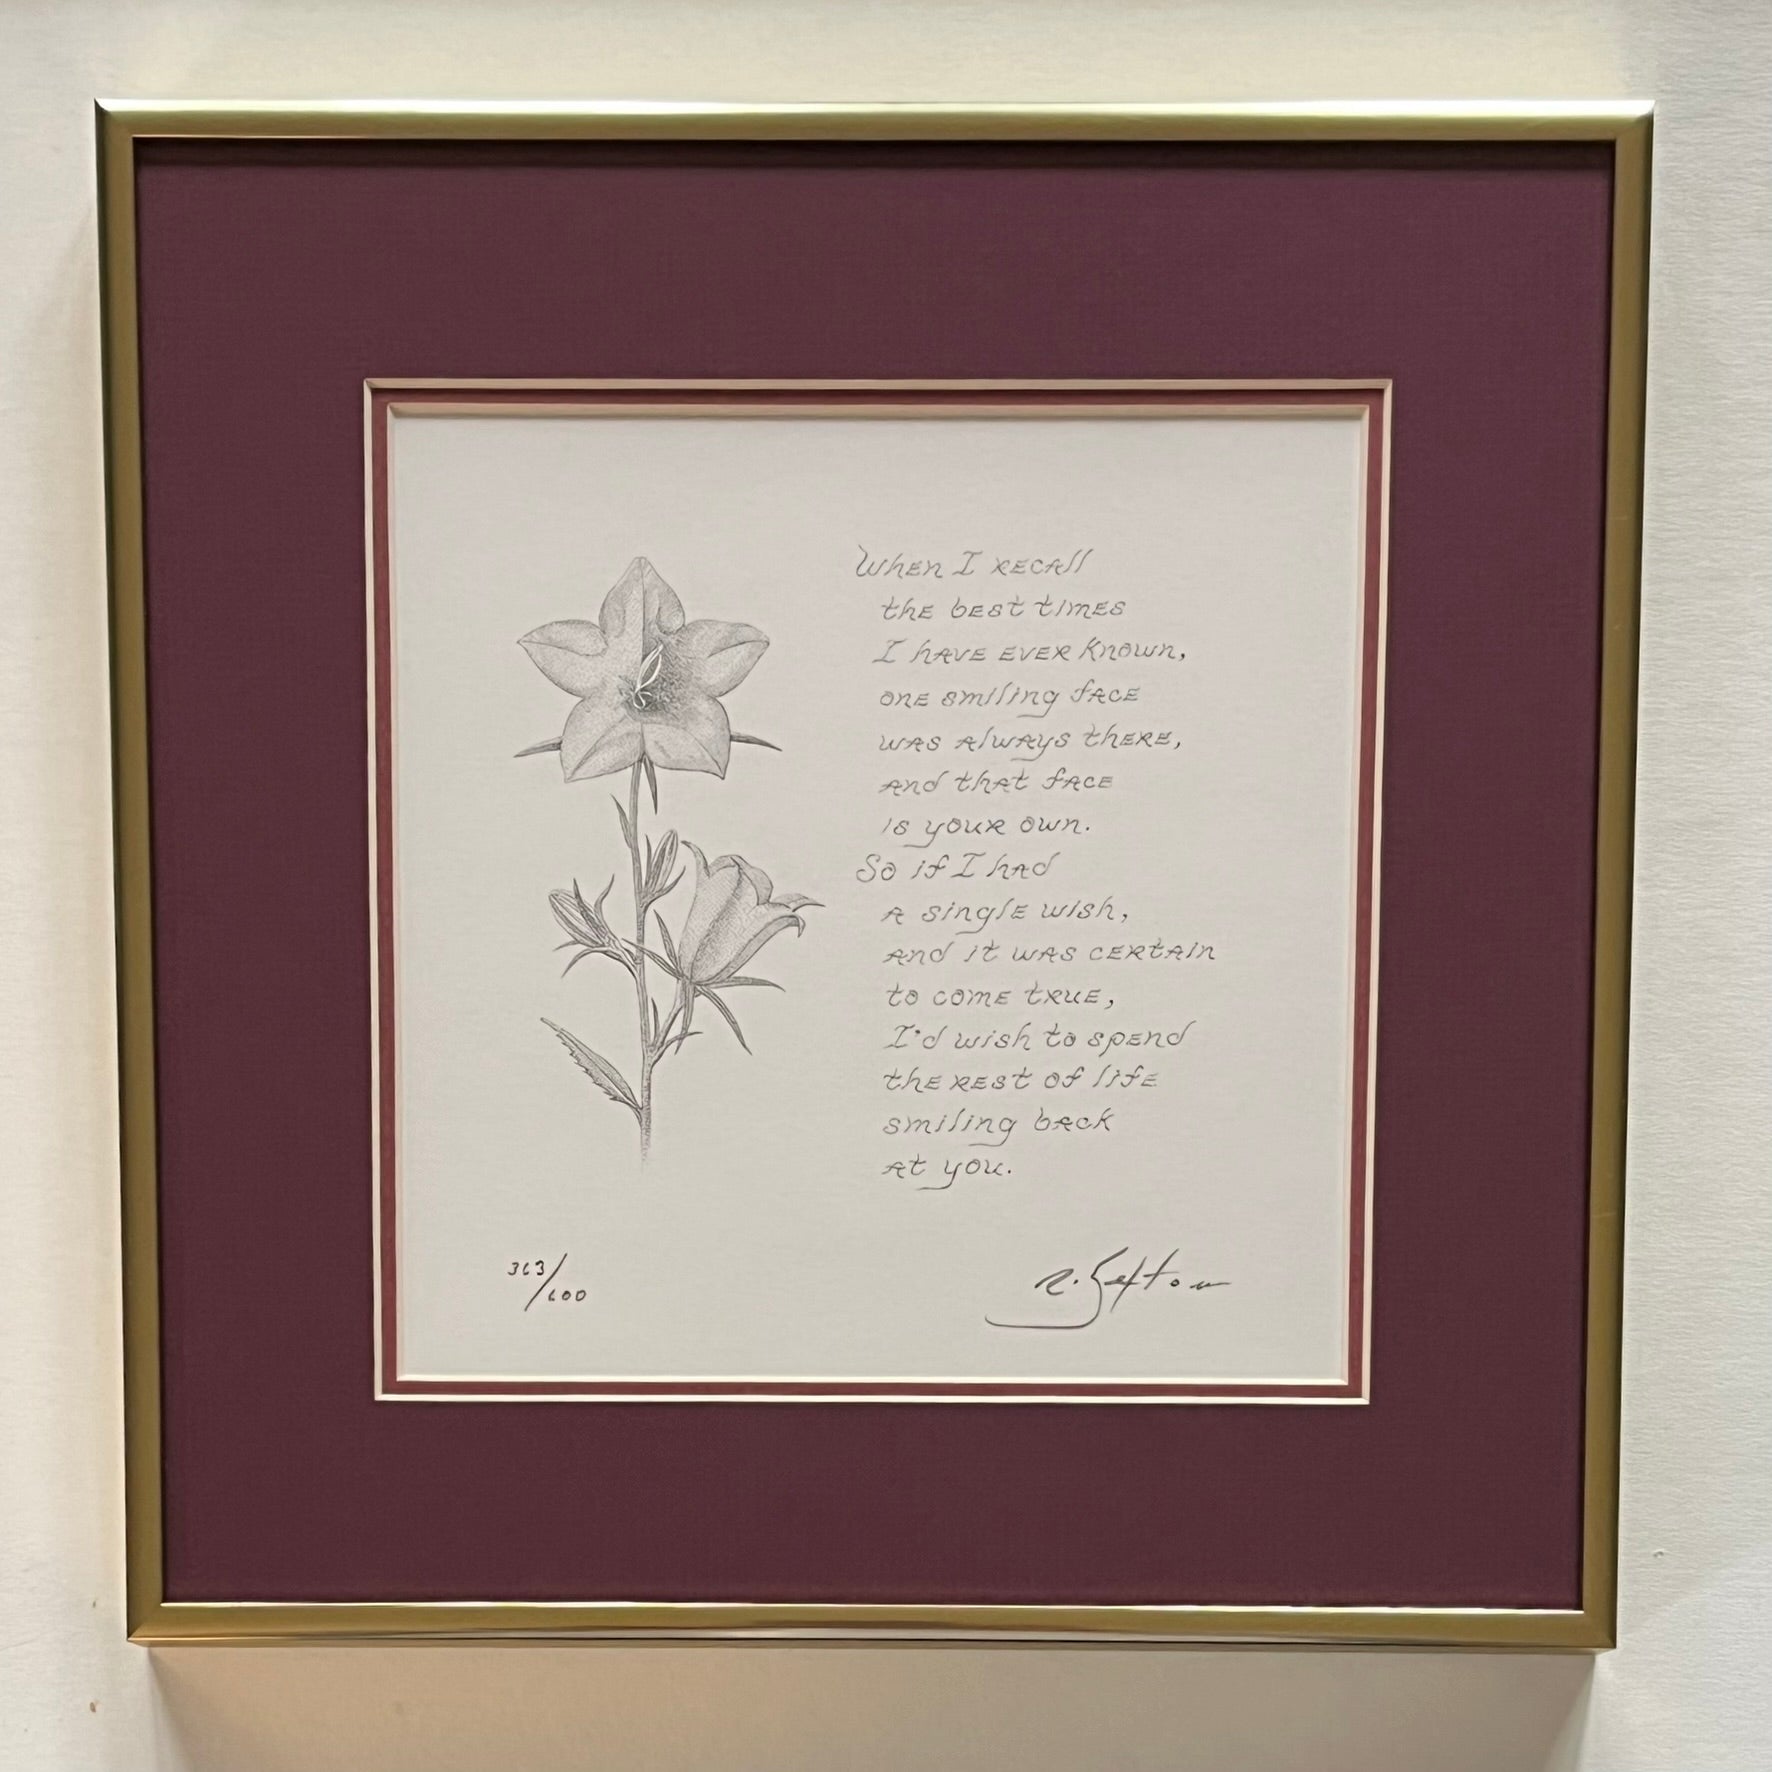 When I recall
the best times
I have ever known,
one smiling face
was always there,
and that face
is your own.
So if I had
a single wish,
and it was certain
to come true,
I'd wish to spend
the rest of life
smiling back
at you.
363/600
R. Sexton